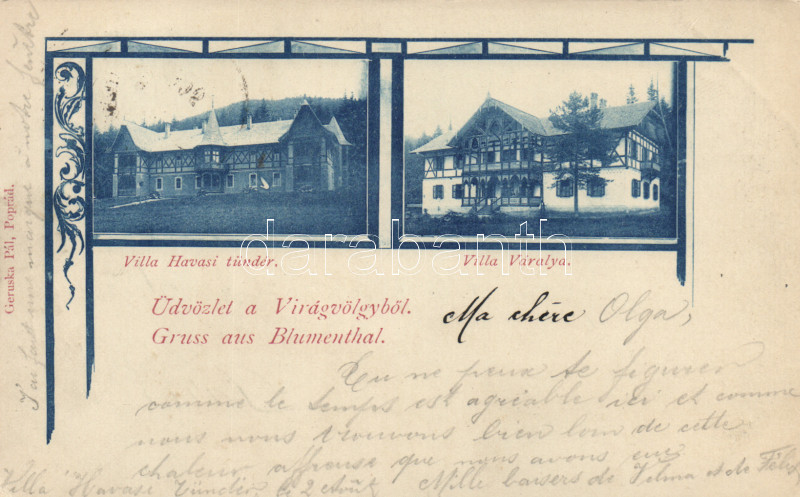 Villa Havasi tündér.
Villa Váralya.
darabanth
Üdvözlet a Virágvölgyből.
Gruss aus Blumenthal.
Geruska Pál, Poprád.
Ma chère Olga,
Tu ne peux te figurer
comme le temps est agréable ici et comme
nous nous trouvons bien loin de cette
chaleur affreuse que nous avons eue
Mille baisers de Vilma et de Félix
Villa Havasi Tündér, le 2 Août
J'ai fait une marque à notre fenêtre